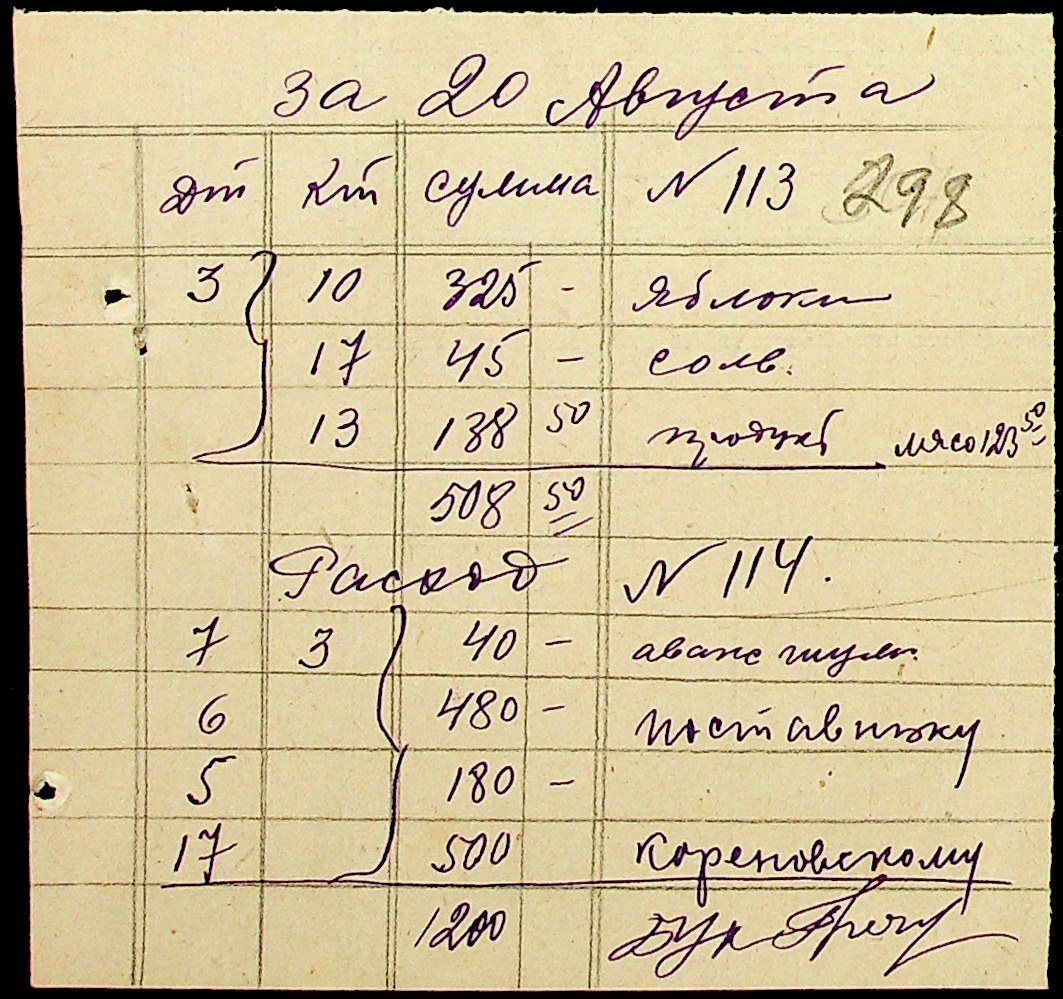 за 20 Августа
Дт Кт сумма N 113 298
3 10 325 - яблоки
17 45 - соль.
13 138 50 продукт мясо 123 50
508 50
Расход N 114.
7 3 40 - аванс
6 480 - поставщику
5 180 -
17 500 Кореновскому
1200 Бух